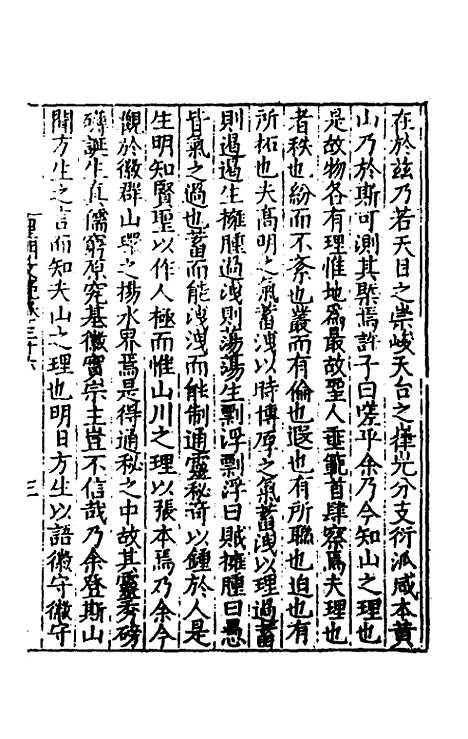 在於兹乃若天目之崇峻天台之嵂兀分支衍派咸本黄
山乃於斯可測其槩焉許子曰嗟乎余乃今知山之理也
是故物各有理惟地爲最故聖人垂範首肆察焉夫理也
者秩也紛而不紊也叢而有倫也遐也有所聯也迫也有
所拓也夫高明之氣蓄洩以時博厚之氣蓄洩以理過蓄
則遏遏生擁腫過洩則蕩蕩生剽浮剽浮曰賊擁腫曰愚
皆氣之過也蓄而能洩洩而能制通靈秘奇以鍾於人是
生明知賢聖以作人極而惟山川之理以張本焉乃余今
觀於徽群山環之揚水界焉是得通秘之中故其靈秀磅
礴誕生真儒窮原究基徽實宗主豈不信哉乃余登斯山
聞方生之言而知夫山之理也明日方生以語徽守徽守
皇明文範卷三十六
三